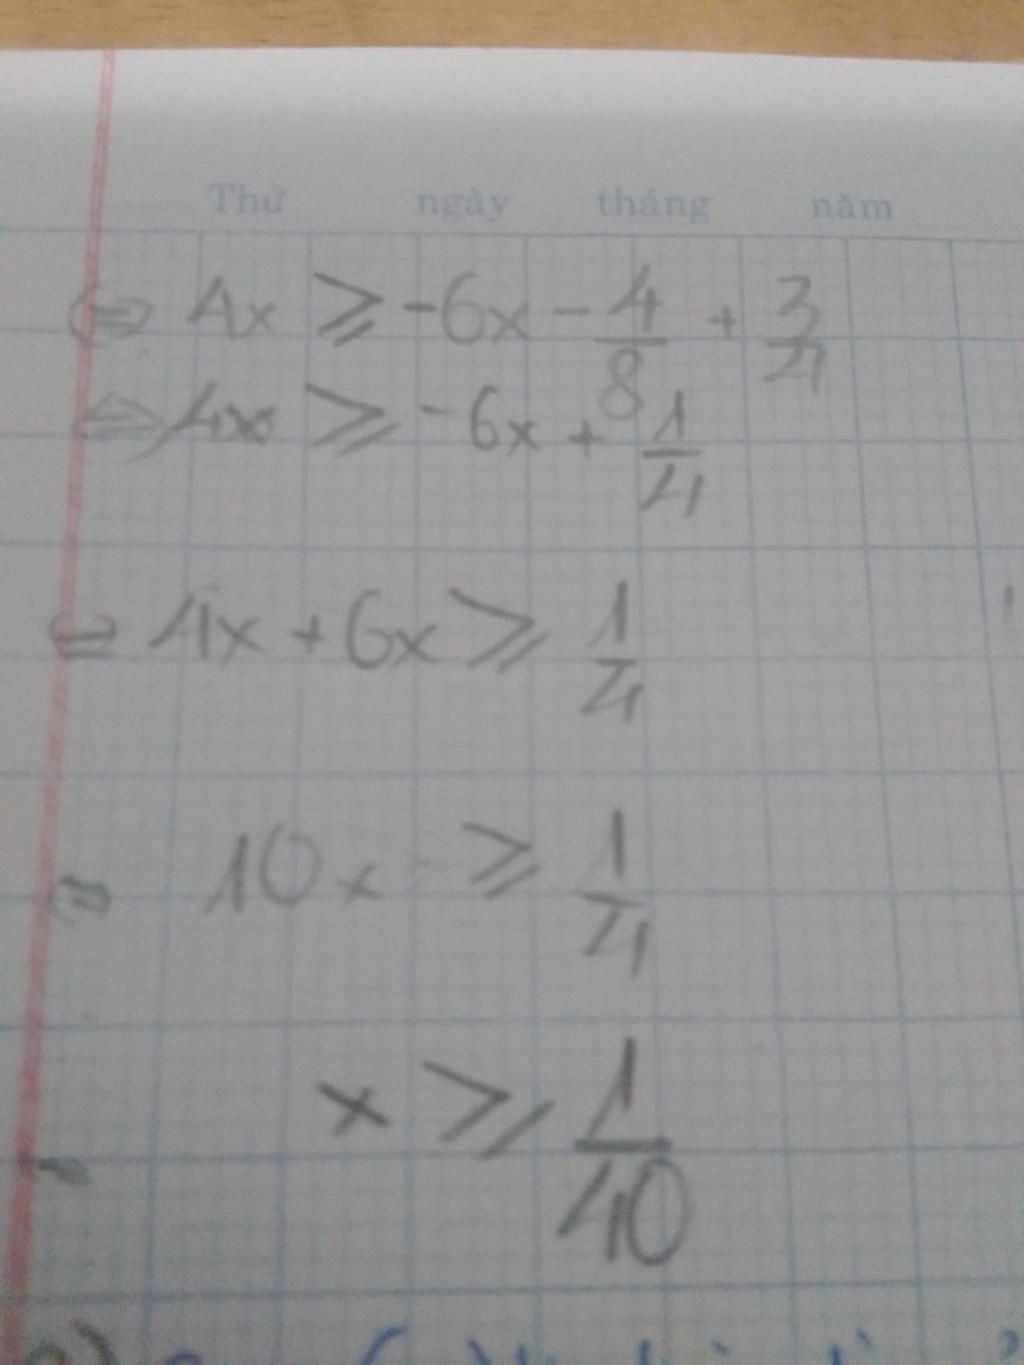 Thứ ngày tháng năm
⇔ 4x ≥ -6x - 4/8 + 3/4
⇔ 4x ≥ -6x + 1/4
⇔ 4x + 6x ≥ 1/4
⇔ 10x ≥ 1/4
x ≥ 1/40